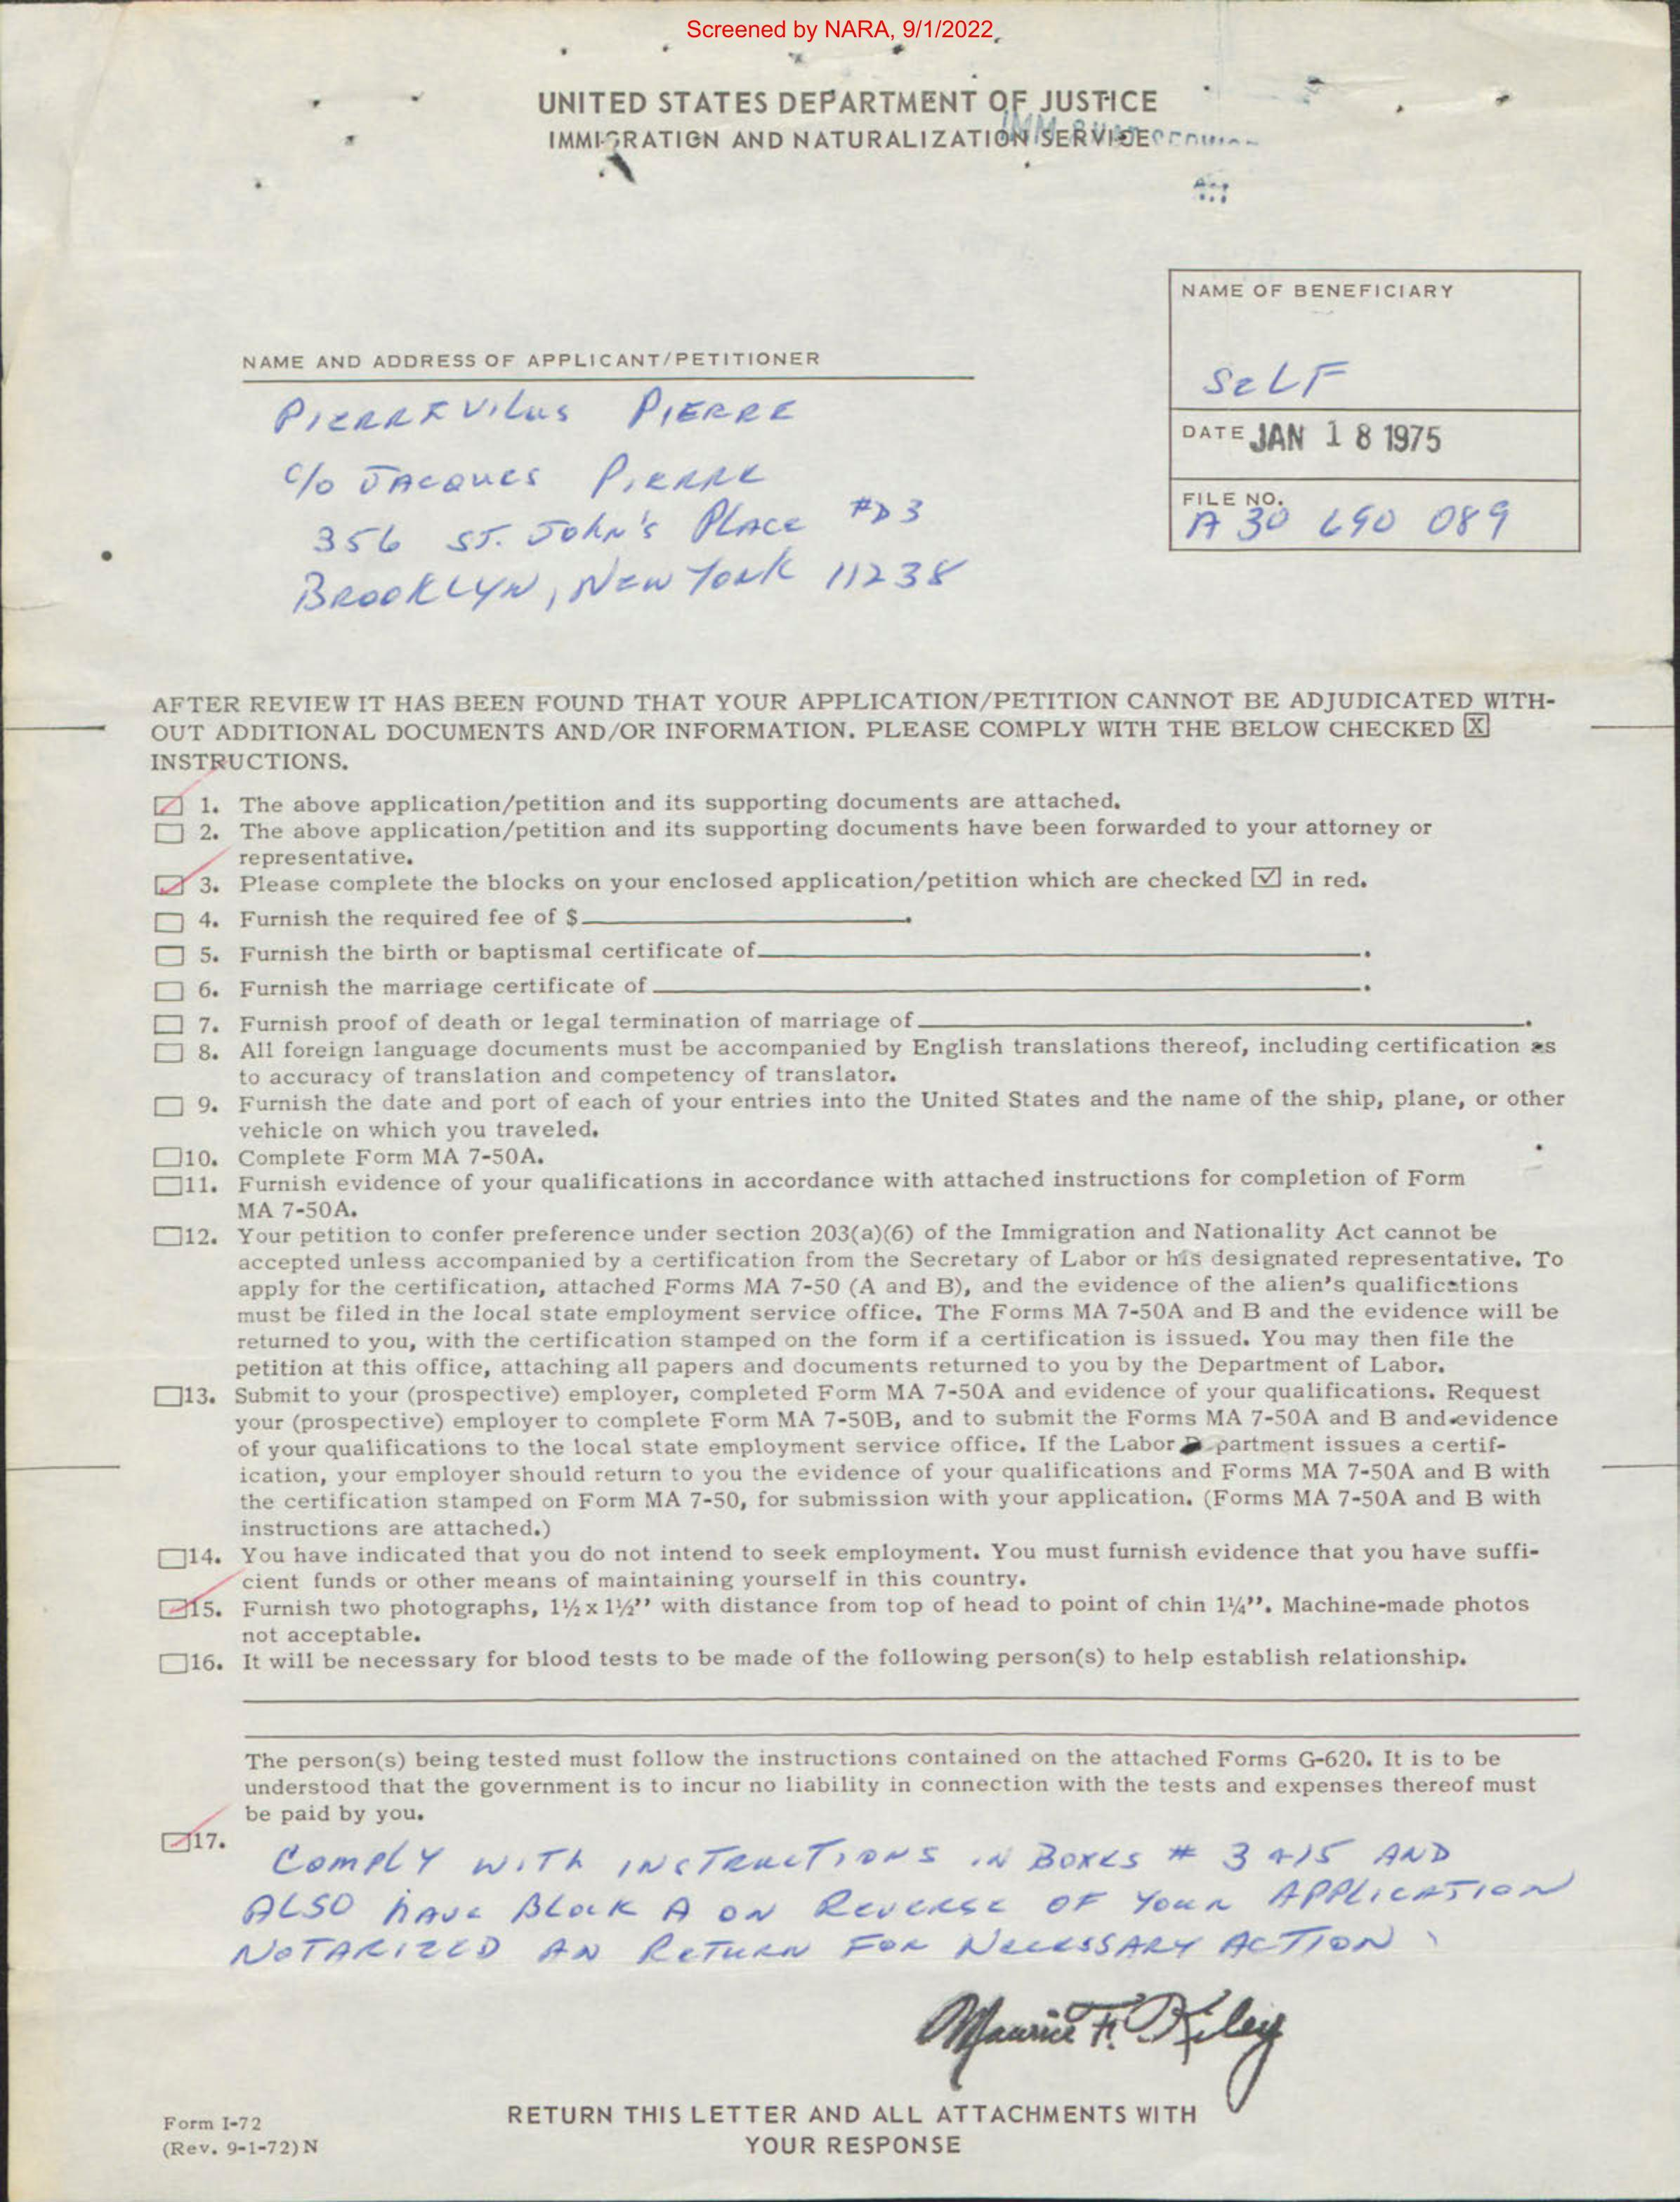 Screened by NARA, 9/1/2022
UNITED STATES DEPARTMENT OF JUSTICE
IMMIGRATION AND NATURALIZATION SERVICE
NAME OF BENEFICIARY
SELF
NAME AND ADDRESS OF APPLICANT/PETITIONER
PIERREVILUS PIERRE
c/o JACQUES PIERRE
356 ST. JOHN'S PLACE #D3
BROOKLYN, NEW YORK 11238
DATE JAN 18 1975
FILE NO.
A 30 690 089
AFTER REVIEW IT HAS BEEN FOUND THAT YOUR APPLICATION/PETITION CANNOT BE ADJUDICATED WITH-
OUT ADDITIONAL DOCUMENTS AND/OR INFORMATION. PLEASE COMPLY WITH THE BELOW CHECKED X
INSTRUCTIONS.
1. The above application/petition and its supporting documents are attached.
2. The above application/petition and its supporting documents have been forwarded to your attorney or
representative.
3. Please complete the blocks on your enclosed application/petition which are checked ✓ in red.
4. Furnish the required fee of $ .
5. Furnish the birth or baptismal certificate of .
6. Furnish the marriage certificate of .
7. Furnish proof of death or legal termination of marriage of .
8. All foreign language documents must be accompanied by English translations thereof, including certification as
to accuracy of translation and competency of translator.
9. Furnish the date and port of each of your entries into the United States and the name of the ship, plane, or other
vehicle on which you traveled.
10. Complete Form MA 7-50A.
11. Furnish evidence of your qualifications in accordance with attached instructions for completion of Form
MA 7-50A.
12. Your petition to confer preference under section 203(a)(6) of the Immigration and Nationality Act cannot be
accepted unless accompanied by a certification from the Secretary of Labor or his designated representative. To
apply for the certification, attached Forms MA 7-50 (A and B), and the evidence of the alien's qualifications
must be filed in the local state employment service office. The Forms MA 7-50A and B and the evidence will be
returned to you, with the certification stamped on the form if a certification is issued. You may then file the
petition at this office, attaching all papers and documents returned to you by the Department of Labor.
13. Submit to your (prospective) employer, completed Form MA 7-50A and evidence of your qualifications. Request
your (prospective) employer to complete Form MA 7-50B, and to submit the Forms MA 7-50A and B and evidence
of your qualifications to the local state employment service office. If the Labor Department issues a certif-
ication, your employer should return to you the evidence of your qualifications and Forms MA 7-50A and B with
the certification stamped on Form MA 7-50, for submission with your application. (Forms MA 7-50A and B with
instructions are attached.)
14. You have indicated that you do not intend to seek employment. You must furnish evidence that you have suffi-
cient funds or other means of maintaining yourself in this country.
15. Furnish two photographs, 1½ x 1½'' with distance from top of head to point of chin 1¼''. Machine-made photos
not acceptable.
16. It will be necessary for blood tests to be made of the following person(s) to help establish relationship.
The person(s) being tested must follow the instructions contained on the attached Forms G-620. It is to be
understood that the government is to incur no liability in connection with the tests and expenses thereof must
be paid by you.
17.
COMPLY WITH INSTRUCTIONS IN BOXES # 3 & 15 AND
ALSO HAVE BLOCK A ON REVERSE OF YOUR APPLICATION
NOTARIZED AN RETURN FOR NECESSARY ACTION.
Maurice F. Kiley
Form I-72
(Rev. 9-1-72) N
RETURN THIS LETTER AND ALL ATTACHMENTS WITH
YOUR RESPONSE